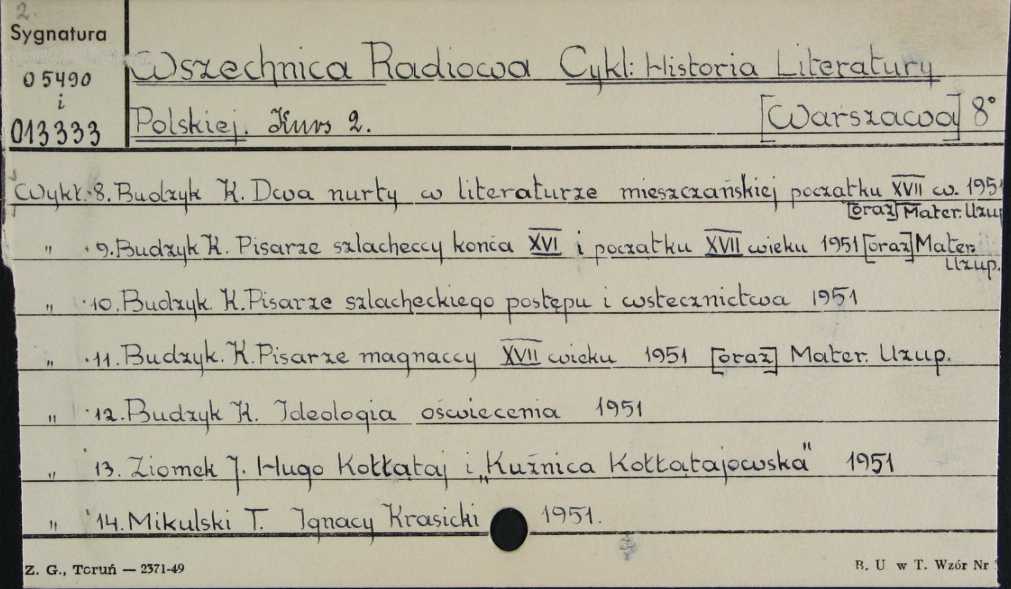 2.
Sygnatura
05490
i
013333
Wszechnica Radiowa Cykl: Historia Literatury
Polskiej. Kurs 2. [Warszawa] 8°
Wykł. 8. Budzyk K. Dwa nurty w literaturze mieszczańskiej początku XVII w. 1951
[oraz] Mater. Uzup
" 9. Budzyk K. Pisarze szlacheccy końca XVI i początku XVII wieku 1951 [oraz] Mater.
Uzup.
" 10. Budzyk K. Pisarze szlacheckiego postępu i wstecznictwa 1951
" 11. Budzyk. K. Pisarze magnaccy XVII wieku 1951 [oraz] Mater. Uzup.
" 12. Budzyk K. Ideologia oświecenia 1951
" 13. Ziomek J. Hugo Kołłątaj i „Kuźnica Kołłątajowska" 1951
" 14. Mikulski T. Ignacy Krasicki 1951.
Z. G., Toruń — 2371-49
B. U w T. Wzór Nr